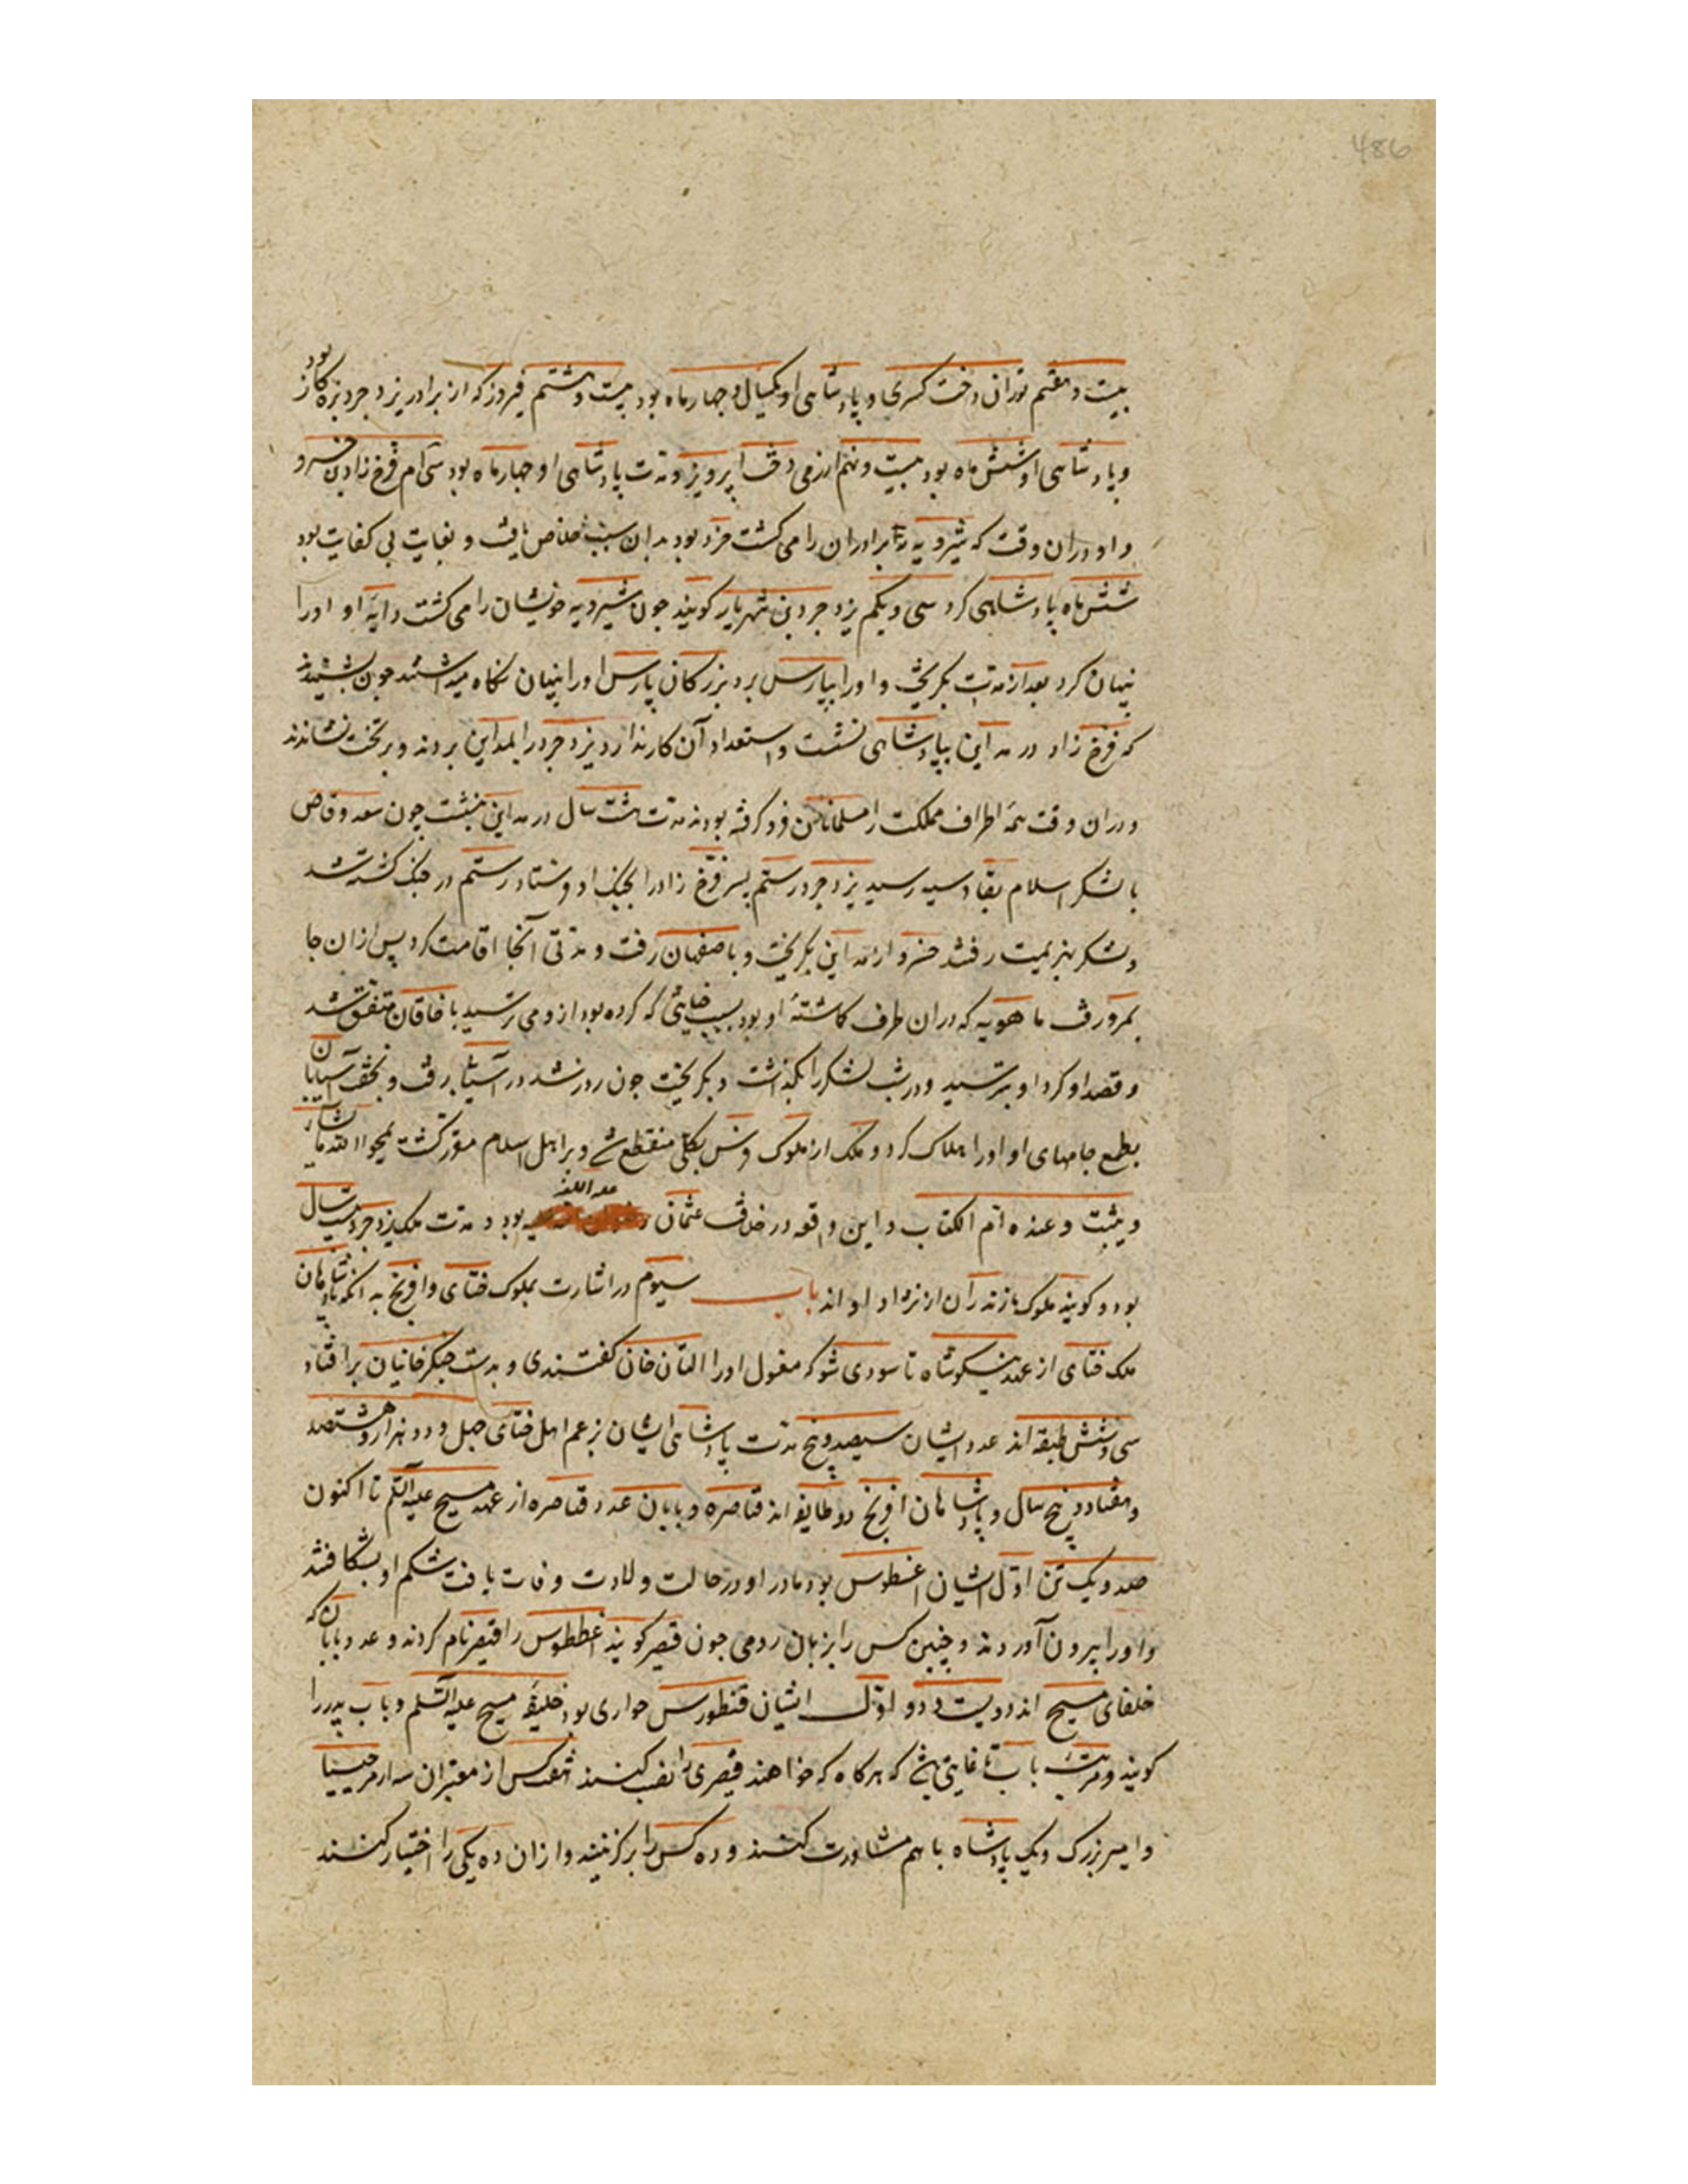 486
بیست و هفتم توران دخت کسری و پادشاهی او یکسال و چهار ماه بود بیست و هشتم فیروز که از برادر یزدجرد بزه کار بود
و پادشاهی او شش ماه بود بیست و نهم ارزمی دخت پرویز و مدت پادشاهی او چهار ماه بود سی ام فرخ زاد بن خسرو
و او دران وقت که شیرویه برادران را می کشت خرد بود بدان سبب خلاص یافت و بغایت بی کفایت بود
شش ماه پادشاهی کرد سی و یکم یزدجرد بن شهریار گویند چون شیرویه خویشان را می کشت دایه او او را
پنهان کرد بعد از مدتی بگریخت و او را بپارس برد بزرگان پارس او را پنهان نگاه میداشتند چون بشنیدند
که فرخ زاد در مداین بپادشاهی نشست و استعداد آن کار ندارد یزدجرد را بمداین بردند و بر تخت نشاندند
و دران وقت همه اطراف مملکت را مسلمانان فرو گرفته بودند مدت هشت سال در مداین بنشست چون سعد وقاص
با لشکر اسلام بقادسیه رسید یزدجرد رستم پسر فرخ زاد را بجنگ او فرستاد رستم در جنگ کشته شد
و لشکر بهزیمت رفتند خسرو از مداین بگریخت و باصفهان رفت و مدتی آنجا اقامت کرد پس ازان جا
بمرو رفت ماهویه که دران طرف گماشته او بود بسبب خیانتی که کرده بود از و می ترسید با خاقان متفق شد
و قصد او کرد او بترسید و در شب لشکر را بگذاشت و بگریخت چون روز شد در آسیا رفت و بخفت آسیابان
بطمع جامهای او او را هلاک کرد و ملک از ملوک فرس بکلی منقطع شد و بر اهل اسلام مقرر گشت یمحوا الله ما یشاء
و یثبت و عنده ام الکتاب و این واقعه در خلافت عثمان علیه اللعنه بود و مدت ملک یزدجرد بیست سال
بود و گویند ملوک مازندران از نژاد او اند باب سیوم در اشارت بملوک ختای و افرنج بدانکه پادشاهان
ملک ختای از عهد تا سودی شو که مغول او را التان خان گفتندی و بدست چنگزخانیان برافتاد
سی و شش طبقه اند عدد ایشان سیصد و پنج مدت پادشاهی ایشان بزعم اهل ختای چهل و دو هزار و هشتصد
و هفتاد و پنج سال و پادشاهان افرنج دو طایفه اند قیاصره و بابان عدد قیاصره از عهد مسیح علیه السلم تا اکنون
صد و یک تن اول ایشان اغسطوس بود مادر او در حالت ولادت وفات یافت شکم او بشکافتند
و او را بیرون آوردند و چنین کس را بزبان رومی چون قیصر گویند اغسطوس را قیصر نام کردند و عدد بابان که
خلفای مسیح اند دویست و دو اول ایشان حواری بود خلیفه مسیح علیه السلم و باب پدر را
گویند و مرتبه باب تا غایتی است که هرگاه که خواهند قیصری را نصب کنند از معتبران سه
و امیر بزرگ و یک پادشاه با هم مشاورت کنند و ده کس را برگزینند و ازان ده یکی را اختیار کنند